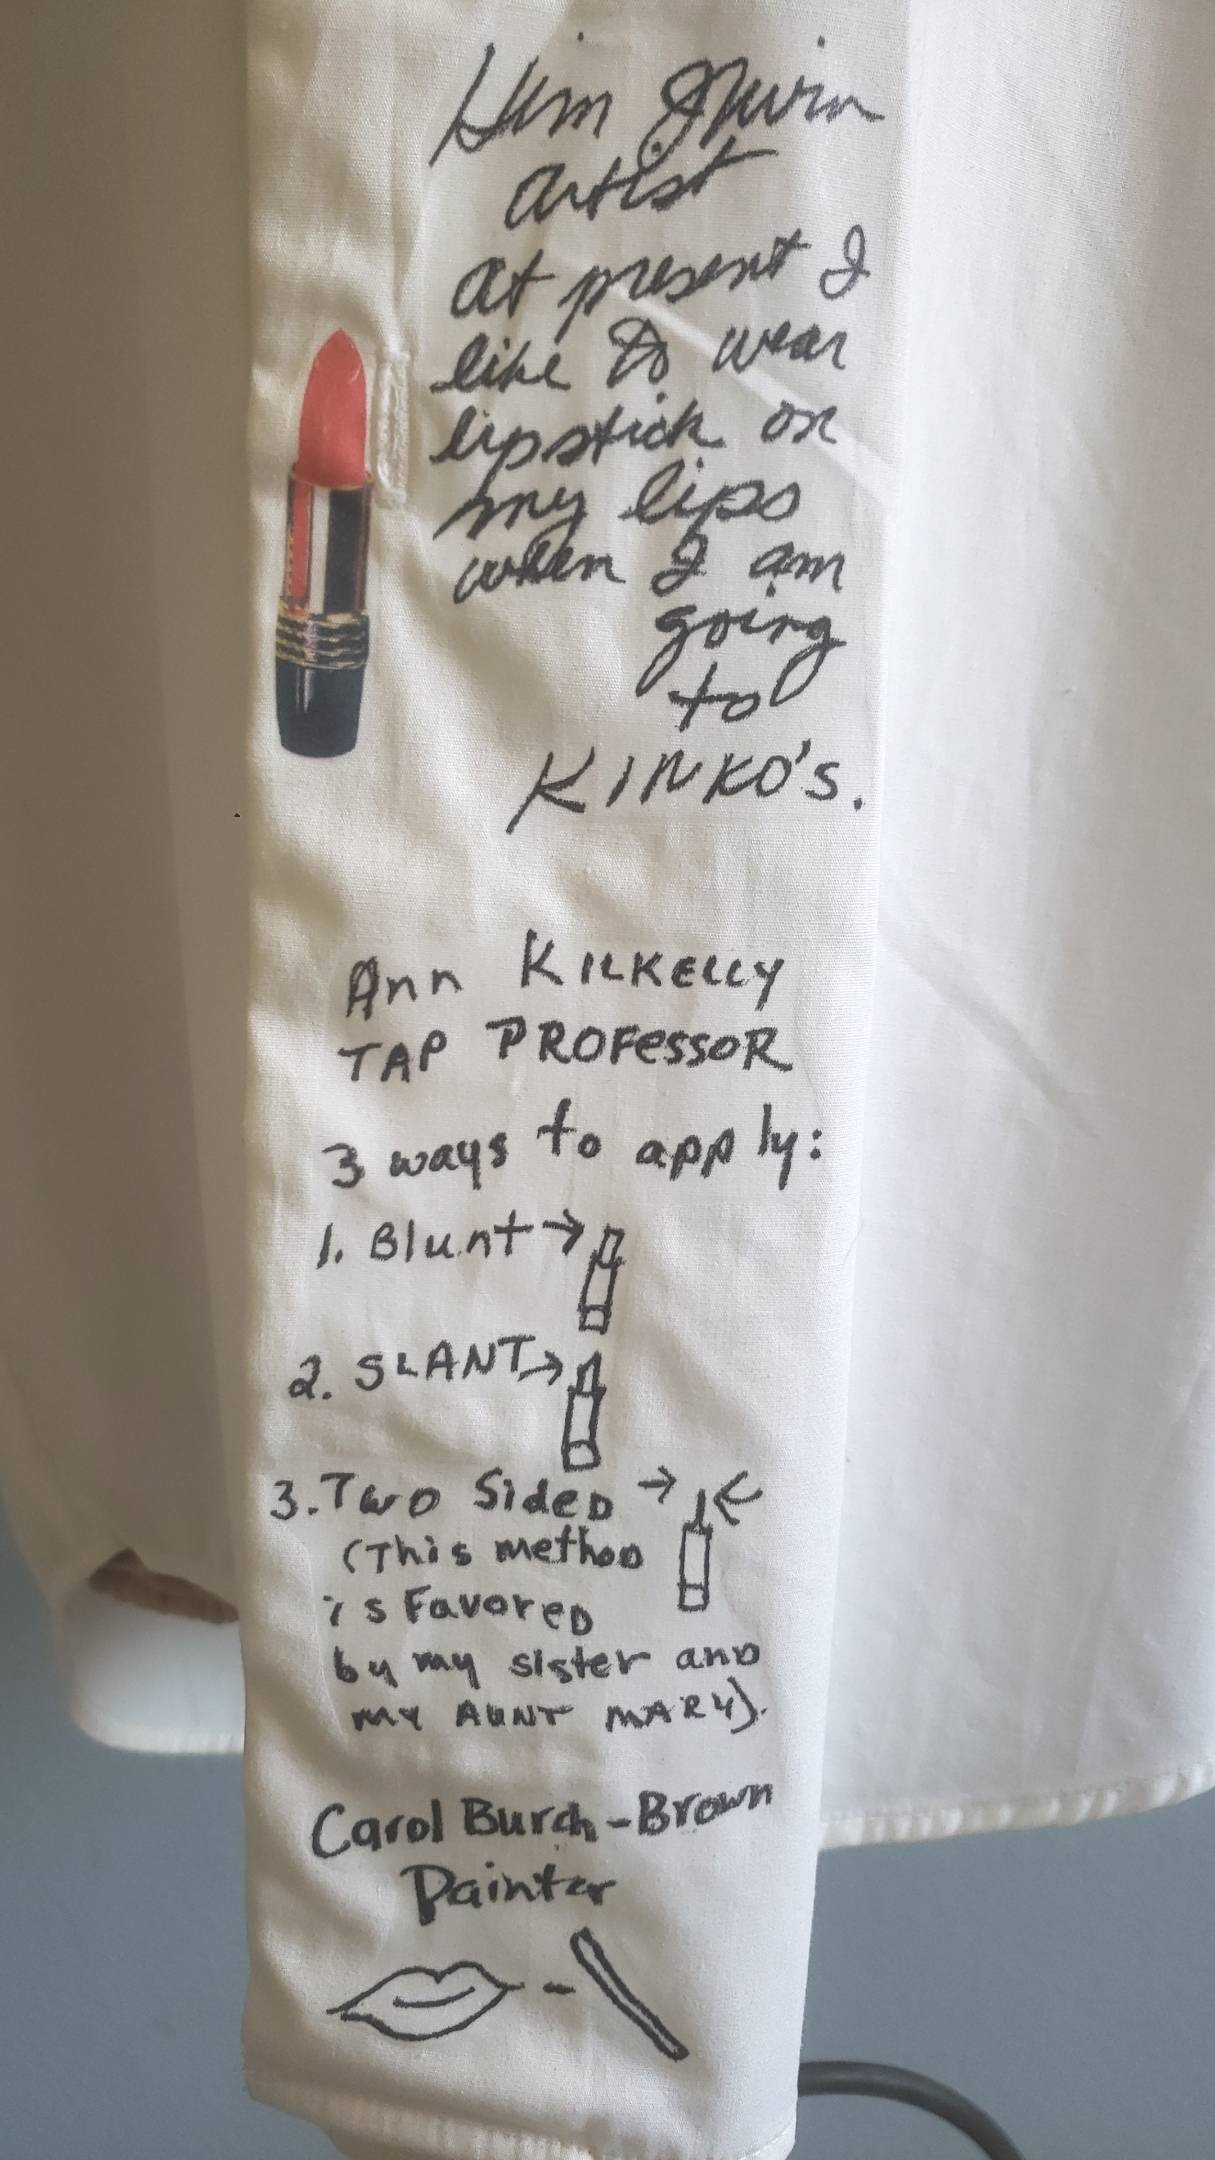 Kim Irwin
artist
at present I
like to wear
lipstick on
my lips
when I am
going
to
KINKO'S.
Ann KILKELLY
TAP PROFessoR
3 ways to apply:
1. Blunt →
2. SLANT →
3. Two Sided → ←
(This method
is Favored
by my sister and
my AUNT MARY).
Carol Burch-Brown
Painter